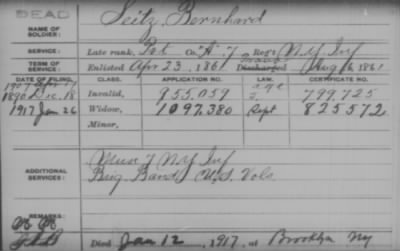 DEAD
NAME OF SOLDIER: Seitz, Bernhard
SERVICE: Late rank, Pvt Co. A, 7 Reg't N.Y. Inf
TERM OF SERVICE: Enlisted Apr 23, 1861 Discharged Aug 6, 1861
DATE OF FILING. CLASS. APPLICATION NO. LAW. CERTIFICATE NO.
1907 Apr 17 age
1890 Dec. 18 Invalid, 955.059 799.725
1917 Jan 26 Widow, 1097.380 Sept 825572
Minor,
ADDITIONAL SERVICES: 7 N.Y. Inf
Brig. Band U.S. Vols.
REMARKS:
Died Jan 12, 1917, at Brooklyn Ny